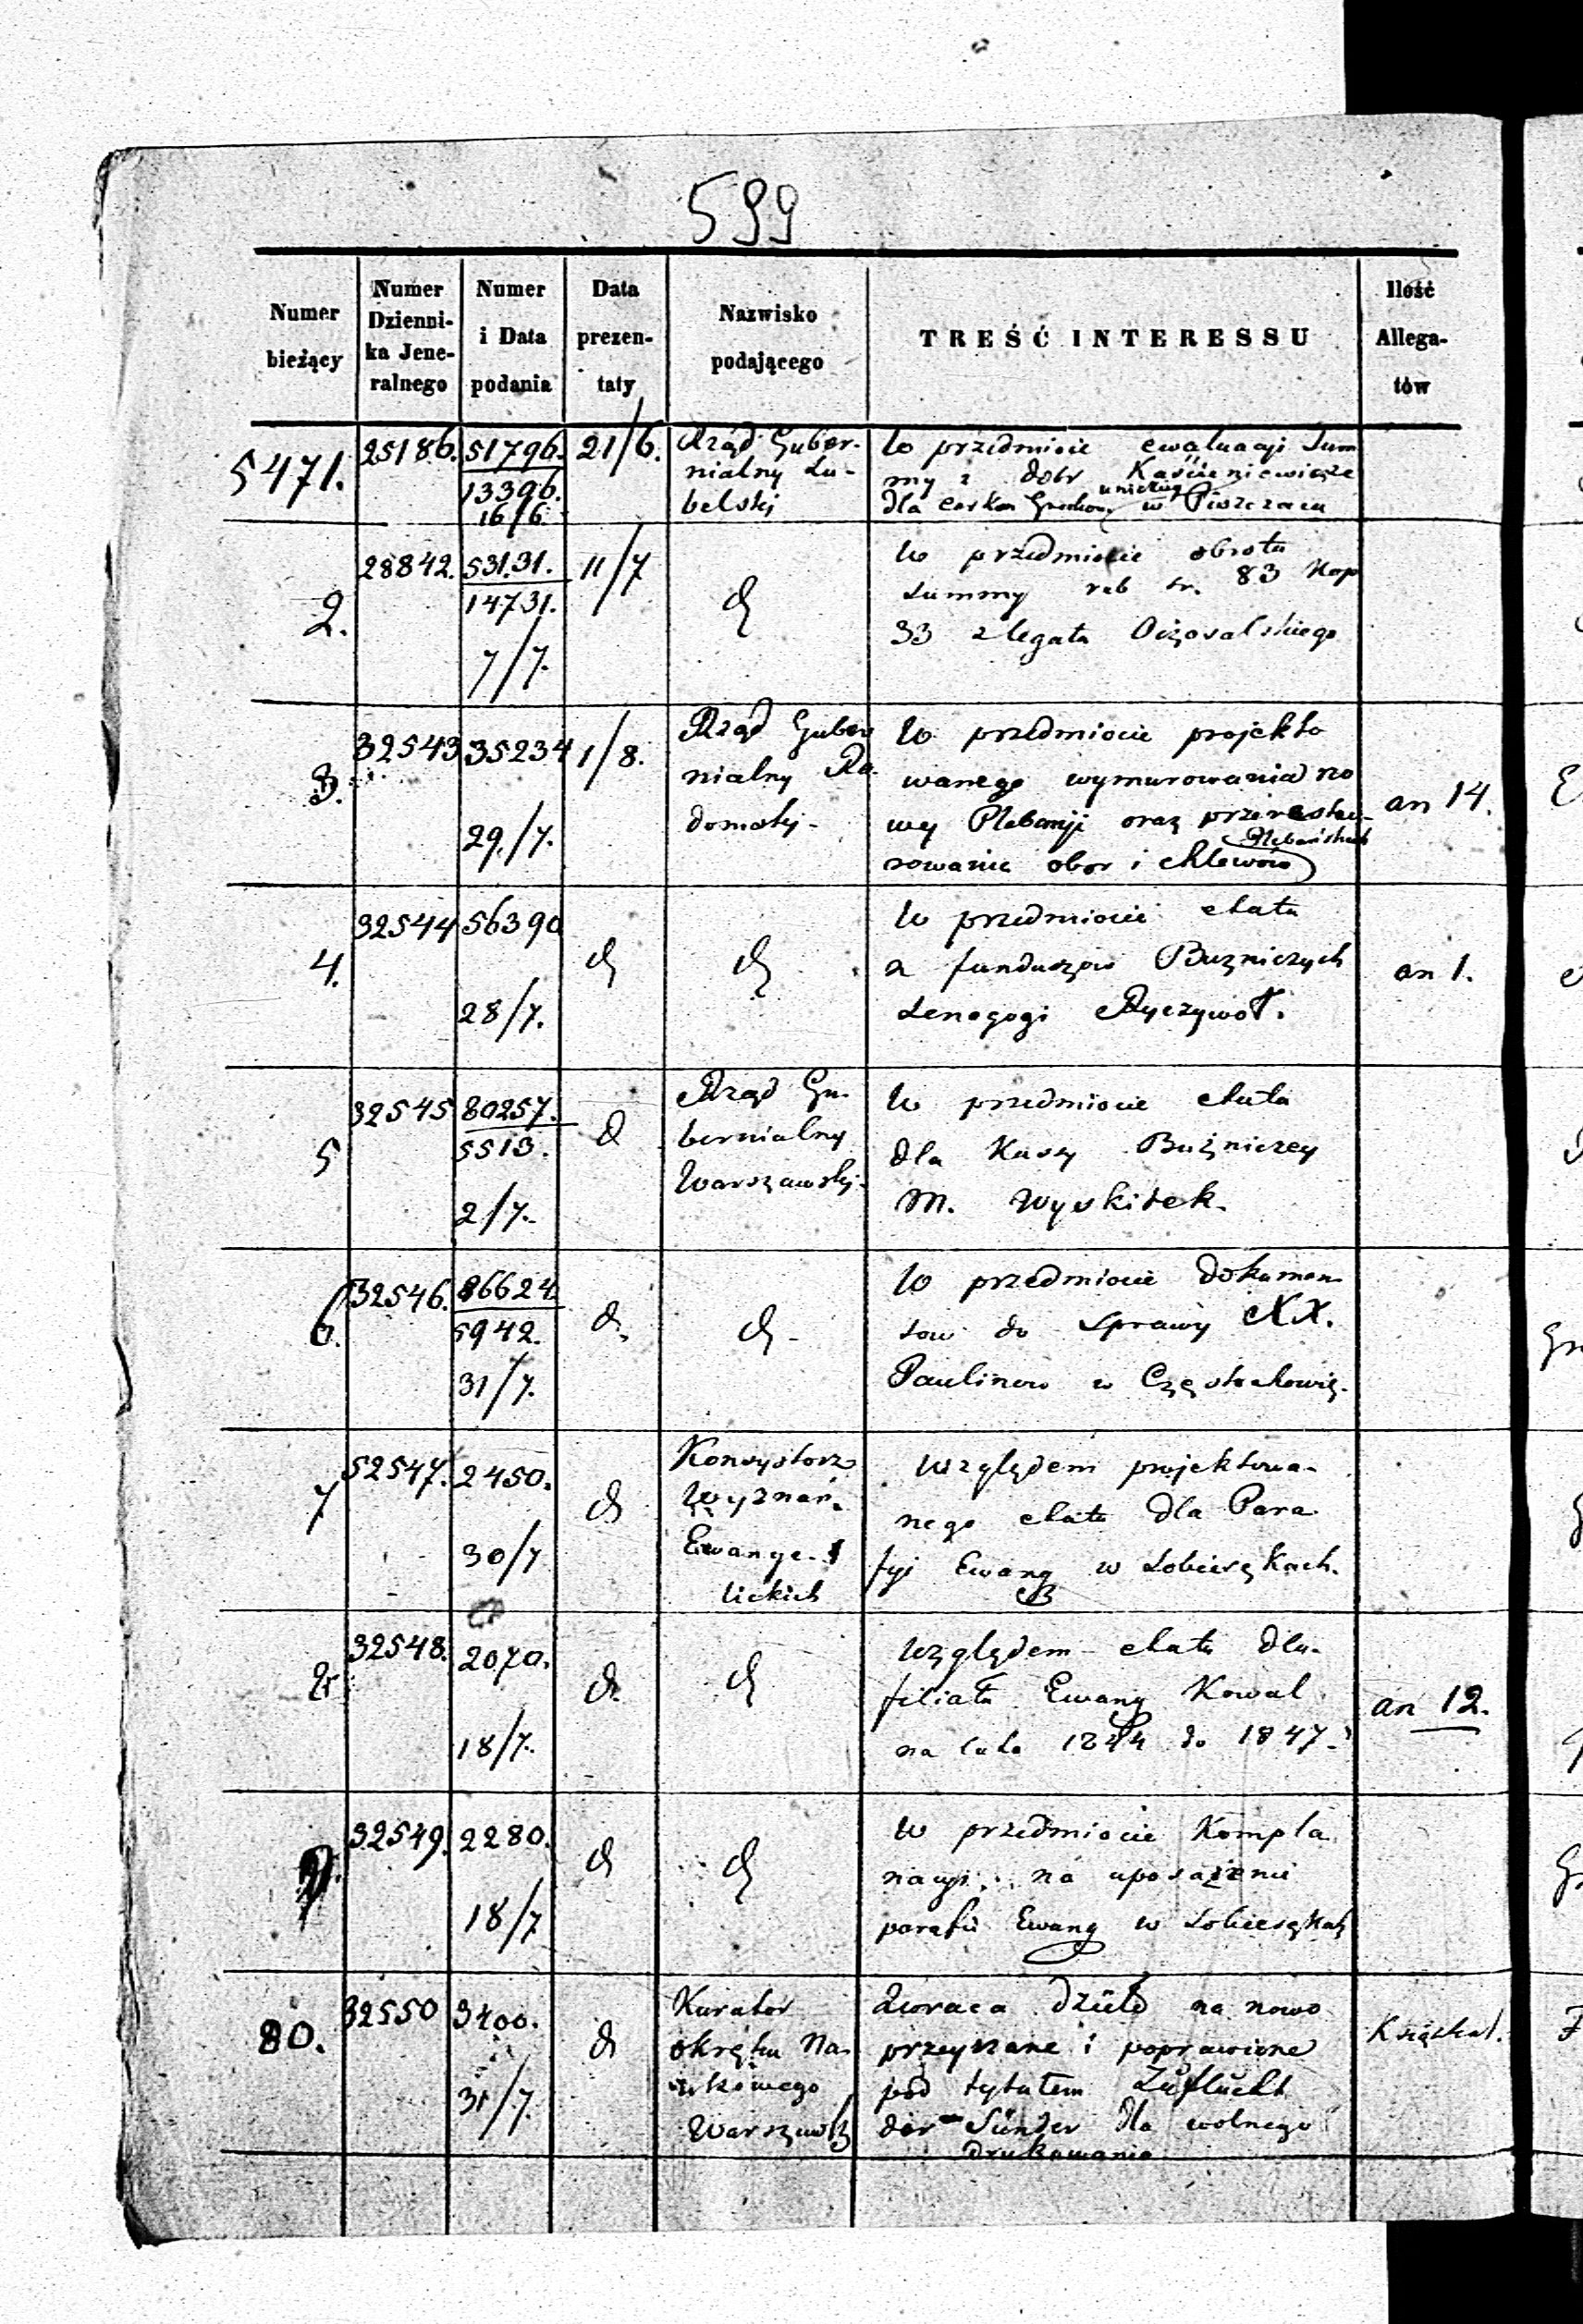 599
Numer bieżący
Numer Dzienni-ka Jene-ralnego
Numer i Data podania
Data prezen-taty
Nazwisko podającego
TREŚĆ INTERESSU
Ilość Allega-tów
5471.
25186.
51796.
13396.
16/6
21/6.
Rząd Guber-
nialny Lu-
belski
W przedmiocie ewaluacyi Sum
my z dobr
dla Cerkwi w Piszczacu
2.
28842.
53131.
14731.
7/7.
11/7
d
W przedmiocie obrotu
summy rub sr. 83 kop
33 z legatu
3.
32543
35234
29/7.
1/8.
Rząd Guber
nialny Ra-
domski
W przedmiocie projekto
wanego wymurowania no
wej Plebanji oraz przeresta-
Plebańskich
rowania obor i chlewów
an 14.
4.
32544
56390
28/7.
d
d
W przedmiocie etatu
z funduszów Bużniczych
Senogogi Ryczywoł.
an 1.
5
32545
80257.
5513.
2/7.
d
Rząd Gu-
bernialny
Warszawski
W przedmiocie etatu
dla Kassy Bużniczey
M. Wyskitek.
6.
32546.
86624
5942.
31/7.
d.
d -
W przedmiocie dokumen
tow do sprawy XX.
Paulinow w Częstochowie.
7
52547.
2450.
30/7
d
Konsystorz
Wyznań
Ewange-
lickich
Względem projektowa-
nego etatu dla Para
fyi Ewang w Sobiesękach.
8
32548.
2070.
18/7.
d.
d
Względem etatu dla
filiału Ewang Kowal
na lata 1844 do 1847.
an 12.
9.
32549.
2280.
18/7
d
d
W przedmiocie Kompla
nacyi na uposażenie
parafii Ewang w Sobiesękach
80.
32550
3400.
31/7.
d
Kurator
okręgu Na-
ukowego
Warszaws
Zwraca dzieło na nowo
przejrzane i poprawione
pod tytułem Zuflucht
der Sünder dla wolnego
drukowania
Książka 1.